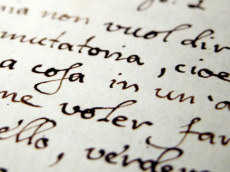 nia non vuol dir
mutatoria, cioe
a cosa in un a
me voler far
ello, verdem